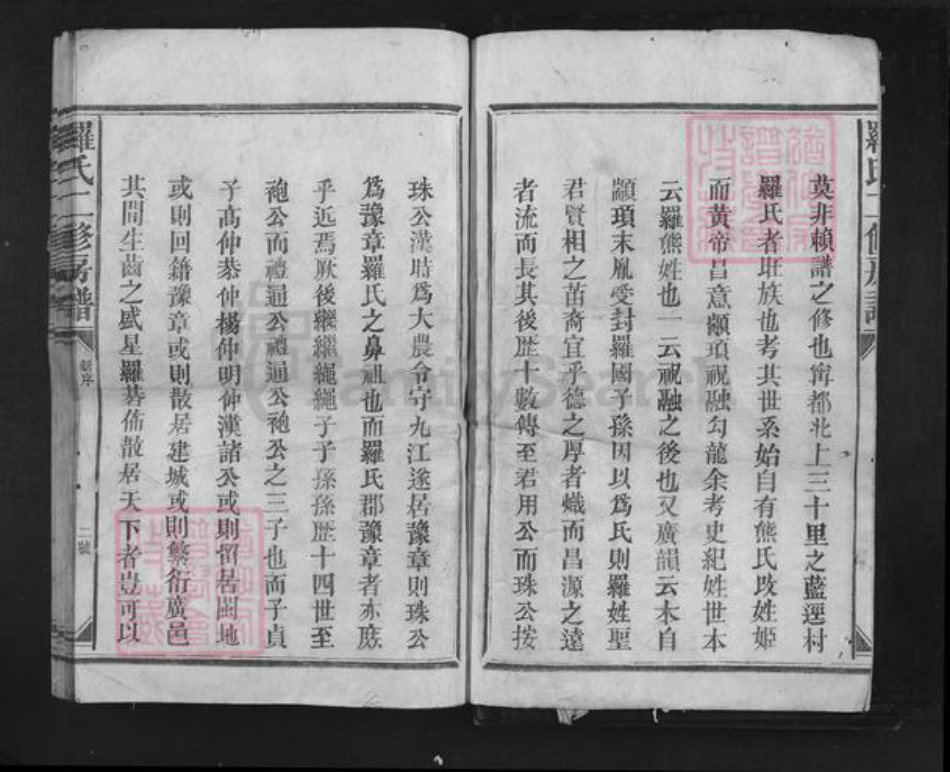 莫非賴譜之修也甯都北上三十里之藍逕村
羅氏者班族也考其世系始自有熊氏改姓姬
而黃帝昌意顓頊祝融勾龍余考史紀姓世本
云羅熊姓也一云祝融之後也又廣韻云本自
顓頊末胤受封羅國子孫因以爲氏則羅姓聖
君賢相之苗裔宜乎德之厚者熾而昌源之遠
者流而長其後歷十數傳至君用公而珠公按
珠公漢時爲大農令守九江遂居豫章則珠公
爲豫章羅氏之鼻祖也而羅氏郡豫章者亦蔟
乎近焉厥後繼繼繩繩子子孫孫歷十四世至
袍公而禮通公禮通公袍公之三子也而子貞
子高仲恭仲楊仲明仲漢諸公或則留居閩地
或則回籍豫章或則散居建城或則繁衍廣邑
其間生齒之盛星羅碁佈散居天下者豈可以
羅氏二修房譜
新序
二號
FamilySearch